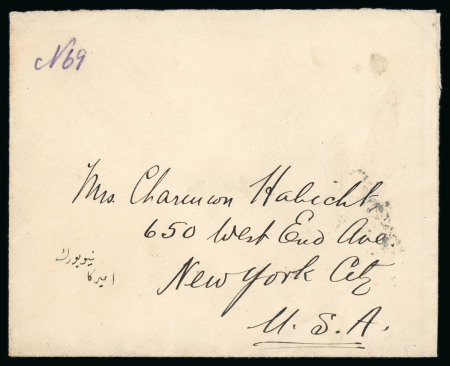 N69
Mrs. Charmion Habicht
650 West End Ave.
New York City
U. S. A.
نیویورک
امریکا